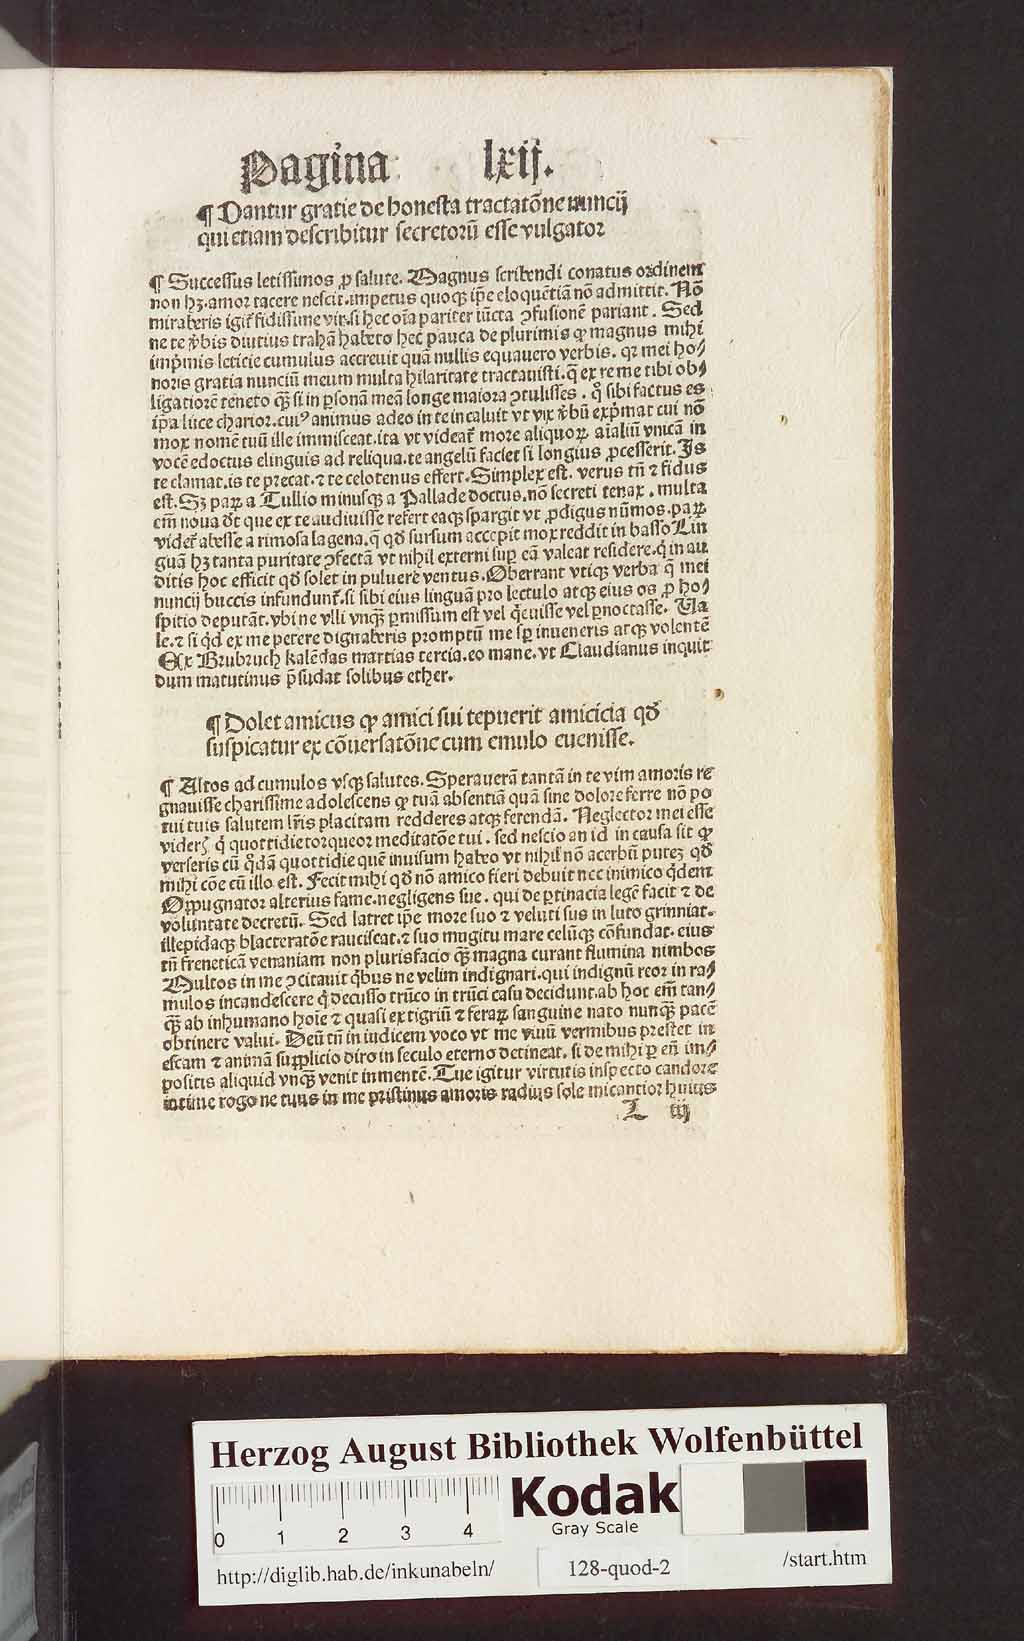 Pagina lxij.
¶ Dantur gratie de honesta tractatõne nuncij
qui etiam describitur secretorũ esse vulgator
¶ Successus letissimos ꝓ salute. Magnus scribendi conatus ordinem
non hꝫ. amor tacere nescit. impetus quoqꝫ ip̃e eloquẽtiã nõ admittit. Nõ
miraberis igit̃ fidissime vir. si hec oĩa pariter iũcta ꝯfusionẽ pariant. Sed
ne te v̾bis diutius trahã habeto hec pauca de plurimis ꝙ magnus mihi
imp̾mis leticie cumulus accreuit quã nullis equauero verbis. qꝛ mei ho⸗
noris gratia nunciũ meum multa hilaritate tractauisti. q̃ ex re me tibi ob⸗
ligatiorẽ teneto qꝫ̃ si in ꝑsonã meã longe maiora ꝯtulisses. qͦ sibi factus es
ip̃a luce charior. cuiꝰ animus adeo in te incaluit vt vix v̾bũ exp̾mat cui nõ
mox nomẽ tuũ ille immisceat. ita vt videat̃ more aliquoꝝ aĩaliũ vnicã in
vocẽ edoctus elinguis ad reliqua. te angelũ faciet si longius ꝓcesserit. Is
te clamat. is te p̃cat. ⁊ te celotenus effert. Simplex est. verus tñ ⁊ fidus
est. Sꝫ paꝝ a Tullio minusqꝫ a Pallade doctus. nõ secreti tenax. multa
em̃ noua dt̃ que ex te audiuisse refert eaqꝫ spargit vt ꝓdigus nũmos. paꝝ
videt̃ abesse a rimosa lagena. q̃ qd̾ sursum accepit mox reddit in basso Lin
guã hꝫ tanta puritate ꝯfectã vt nihil externi suꝑ eã valeat residere. qͥ in au
ditis hoc efficit qd̾ solet in puluere ventus. Oberrant vtiqꝫ verba q̃ mei
nuncij buccis infundunt̃. si sibi eius linguã pro lectulo atqꝫ eius os ꝓ ho⸗
spitio deputãt. vbi ne vlli vnqꝫ̃ ꝑmissum est vel qͥeuisse vel ꝑnoctasse. Va
le. ⁊ si qͥd ex me petere dignaberis promptũ me sꝑ inueneris atqꝫ volentẽ
Ex Brubruch kalẽdas martias tercia. eo mane. vt Claudianus inquit
dum matutinus p̃sudat solibus ether.
¶ Dolet amicus ꝙ amici sui tepuerit amicicia qd̾
suspicatur ex cõuersatõne cum emulo euenisse.
¶ Altos ad cumulos vsqꝫ salutes. Sperauerã tantã in te vim amoris re
gnauisse charissime adolescens ꝙ tuã absentiã quã sine dolore ferre nõ po
tui tuis salutem lr̃is placitam redderes atqꝫ ferendã. Neglector mei esse
videris qͥ quottidie torqueor meditatõe tui. sed nescio an id in causa sit ꝙ
verseris cũ qͦdã quottidie quẽ inuisum habeo vt nihil nõ acerbũ putez qd̾
mihi cõe cũ illo est. Fecit mihi qd̾ nõ amico fieri debuit nec inimico qͥdem
Oppugnator alterius fame. negligens sue. qui de ꝑtinacia legẽ facit ⁊ de
voluntate decretũ. Sed latret ip̃e more suo ⁊ veluti sus in luto grinniat.
illepidaqꝫ blacteratõe rauciscat. ⁊ suo mugitu mare celũqꝫ cõfundat. eius
tñ freneticã venaniam non plurisfacio qꝫ̃ magna curant flumina nimbos
Multos in me ꝯcitauit qͥbus ne velim indignari. qui indignũ reor in ra⸗
mulos incandescere qͥ decusso trũco in trũci casu decidunt. ab hoc em̃ tan⸗
qꝫ̃ ab inhumano hoĩe ⁊ quasi ex tigriũ ⁊ feraꝝ sanguine nato nunqꝫ̃ pacẽ
obtinere valui. Deũ tñ in iudicem voco vt me viuũ vermibus prestet in
escam ⁊ animã supplicio diro in seculo eterno detineat. si de mihi ꝑ eũ im⸗
positis aliquid vnqꝫ̃ venit in mentẽ. Tue igitur virtutis inspecto candore
intime rogo ne tuus in me pristinus amoris radius sole micantior huius
L iij
Herzog August Bibliothek Wolfenbüttel
0 1 2 3 4
Kodak
Gray Scale
http://diglib.hab.de/inkunabeln/ 128-quod-2 /start.htm